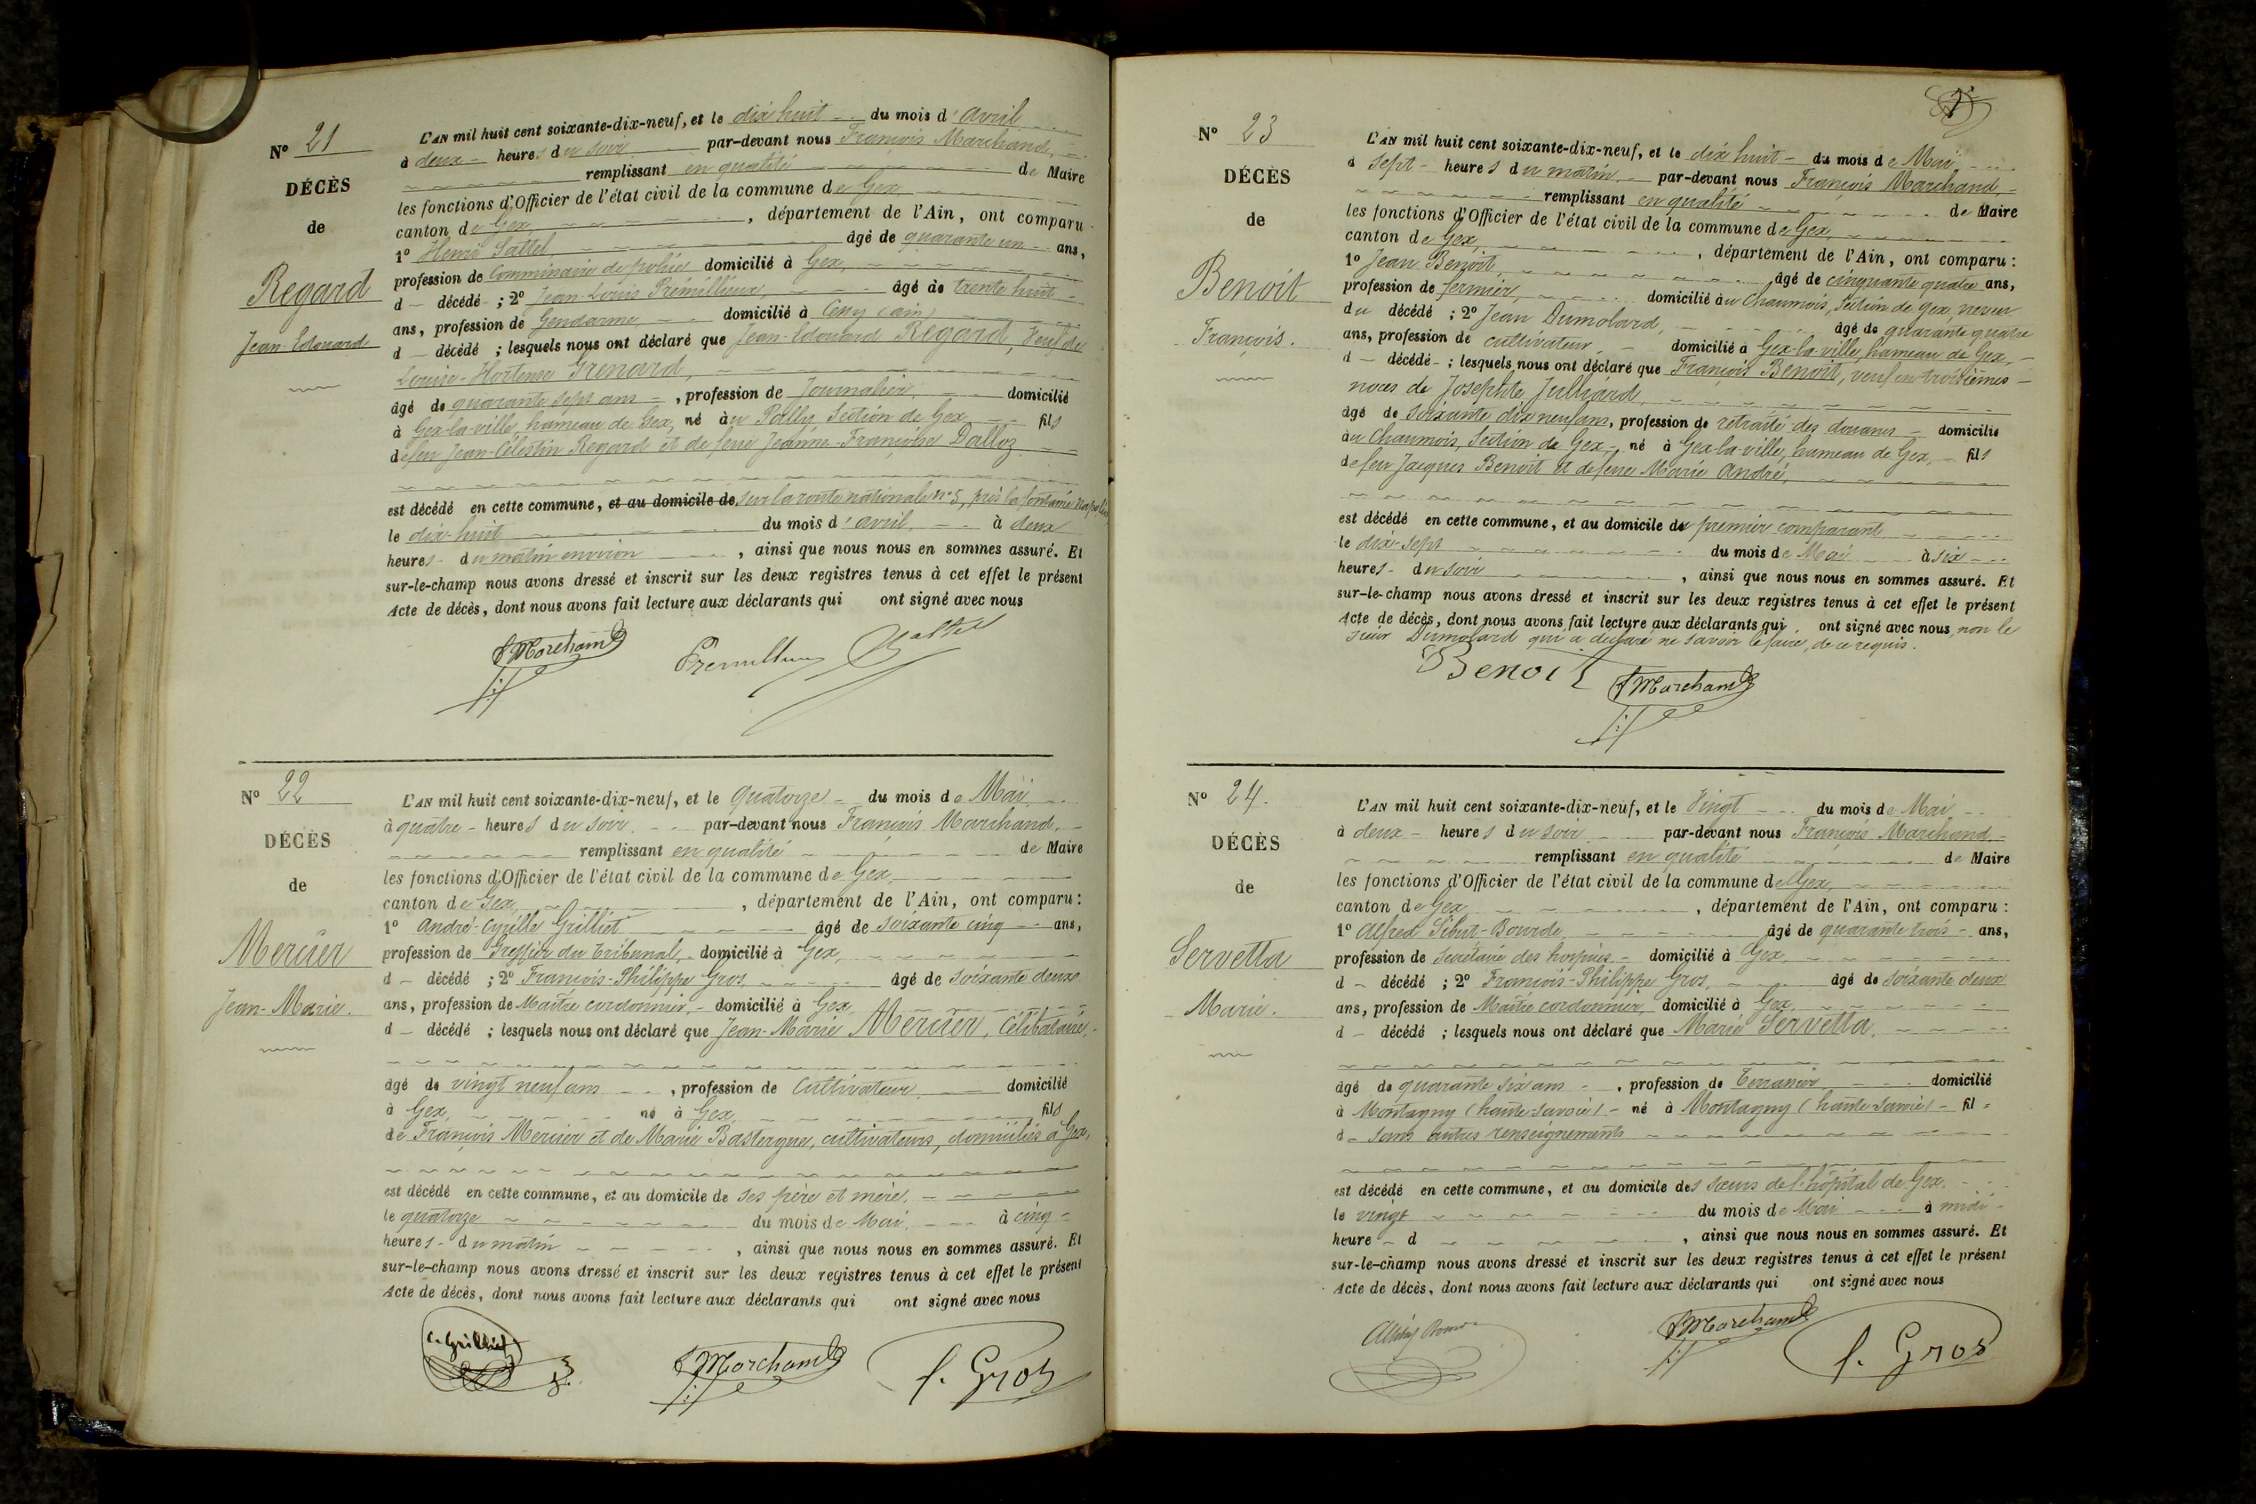 N° 21
DÉCÈS
de
Regard
Jean-Edouard
L'AN mil huit cent soixante-dix-neuf, et le dix huit du mois d'avril
à deux heures du soir par-devant nous François Marchand,
remplissant en qualité de Maire
les fonctions d'Officier de l'état civil de la commune de Gex
canton de Gex, département de l'Ain, ont comparu
1° Henri Sattel âgé de quarante un ans,
profession de Commissaire de police domicilié à Gex,
d décédé ; 2° Jean-Louis Premillieux, âgé de trente huit
ans, profession de Gendarme, domicilié à (ain)
d décédé ; lesquels nous ont déclaré que Jean-Edouard Regard, Veuf de
Louise-Hortense Grenard,
âgé de quarante sept ans, profession de Journalier, domicilié
à Gex-la-ville, hameau de Gex, né au Pailly Section de Gex fils
de feu Jean-Célestin Regard et de feue Jeanne-Françoise Dalloz
est décédé en cette commune, et au domicile de sur la route nationale n° 5, près la fontaine Napoléon
le dix-huit du mois d'avril, à deux
heures du matin environ, ainsi que nous nous en sommes assuré. Et
sur-le-champ nous avons dressé et inscrit sur les deux registres tenus à cet effet le présent
Acte de décès, dont nous avons fait lecture aux déclarants qui ont signé avec nous
F Marchand Premillieux Sattel
N° 22
DÉCÈS
de
Mercier
Jean-Marie.
L'AN mil huit cent soixante-dix-neuf, et le quatorze du mois de Mai,
à quatre heures du soir par-devant nous François Marchand,
remplissant en qualité de Maire
les fonctions d'Officier de l'état civil de la commune de Gex,
canton de Gex, département de l'Ain, ont comparu :
1° André-Cyrille Grilliet âgé de soixante cinq ans,
profession de Greffier du Tribunal, domicilié à Gex,
d décédé ; 2° François-Philippe Gros, âgé de soixante deux
ans, profession de Maître cordonnier, domicilié à Gex
d décédé ; lesquels nous ont déclaré que Jean-Marie Mercier, Célibataire,
âgé de vingt neuf ans, profession de Cultivateur domicilié
à Gex, né à Gex, fils
de François Mercier et de Marie Bastergue, cultivateurs, domiciliés à Gex,
est décédé en cette commune, et au domicile de ses père et mère,
le quatorze du mois de Mai, à cinq
heures du matin, ainsi que nous nous en sommes assuré. Et
sur-le-champ nous avons dressé et inscrit sur les deux registres tenus à cet effet le présent
Acte de décès, dont nous avons fait lecture aux déclarants qui ont signé avec nous
C. Grilliet F Marchand f. Gros
N° 23
DÉCÈS
de
Benoit
François.
L'AN mil huit cent soixante-dix-neuf, et le dix huit du mois de Mai
à sept heures du matin par-devant nous François Marchand
remplissant en qualité de Maire
les fonctions d'Officier de l'état civil de la commune de Gex,
canton de Gex, département de l'Ain, ont comparu :
1° Jean Benoit, âgé de cinquante quatre ans,
profession de fermier, domicilié au Chaumois, Section de Gex, neveu
du décédé ; 2° Jean Dumolard, âgé de quarante quatre
ans, profession de cultivateur, domicilié à Gex-la-ville, hameau de Gex,
d décédé ; lesquels nous ont déclaré que François Benoit, veuf en troisièmes
noces de Josephte Julliard,
âgé de soixante dix neuf ans, profession de retraité des douanes domicilié
au Chaumois, Section de Gex, né à Gex-la-ville, hameau de Gex, fils
de feu Jacques Benoit et de feue Marie André,
est décédé en cette commune, et au domicile du premier comparant
le dix-sept du mois de Mai à six
heures du soir, ainsi que nous nous en sommes assuré. Et
sur-le-champ nous avons dressé et inscrit sur les deux registres tenus à cet effet le présent
Acte de décès, dont nous avons fait lecture aux déclarants qui ont signé avec nous non le
sieur Dumolard qui a déclaré ne savoir le faire, de ce requis.
Benoit F Marchand
N° 24.
DÉCÈS
de
Servetta
Marie.
L'AN mil huit cent soixante-dix-neuf, et le Vingt du mois de Mai
à deux heures du soir par-devant nous François Marchand,
remplissant en qualité de Maire
les fonctions d'Officier de l'état civil de la commune de Gex,
canton de Gex, département de l'Ain, ont comparu :
1° Alfred Sibut-Bourde, âgé de quarante trois ans,
profession de Secrétaire des hospices domicilié à Gex,
d décédé ; 2° François-Philippe Gros, âgé de soixante deux
ans, profession de Maître cordonnier, domicilié à Gex,
d décédé ; lesquels nous ont déclaré que Marie Servetta,
âgé de quarante six ans, profession de Terrassier domicilié
à Montagny (haute-savoie) né à Montagny (haute-savoie) fil
d sans autres renseignements
est décédé en cette commune, et au domicile des sœurs de l'hôpital de Gex,
le vingt du mois de Mai à midi
heure d, ainsi que nous nous en sommes assuré. Et
sur-le-champ nous avons dressé et inscrit sur les deux registres tenus à cet effet le présent
Acte de décès, dont nous avons fait lecture aux déclarants qui ont signé avec nous
F Marchand f. Gros